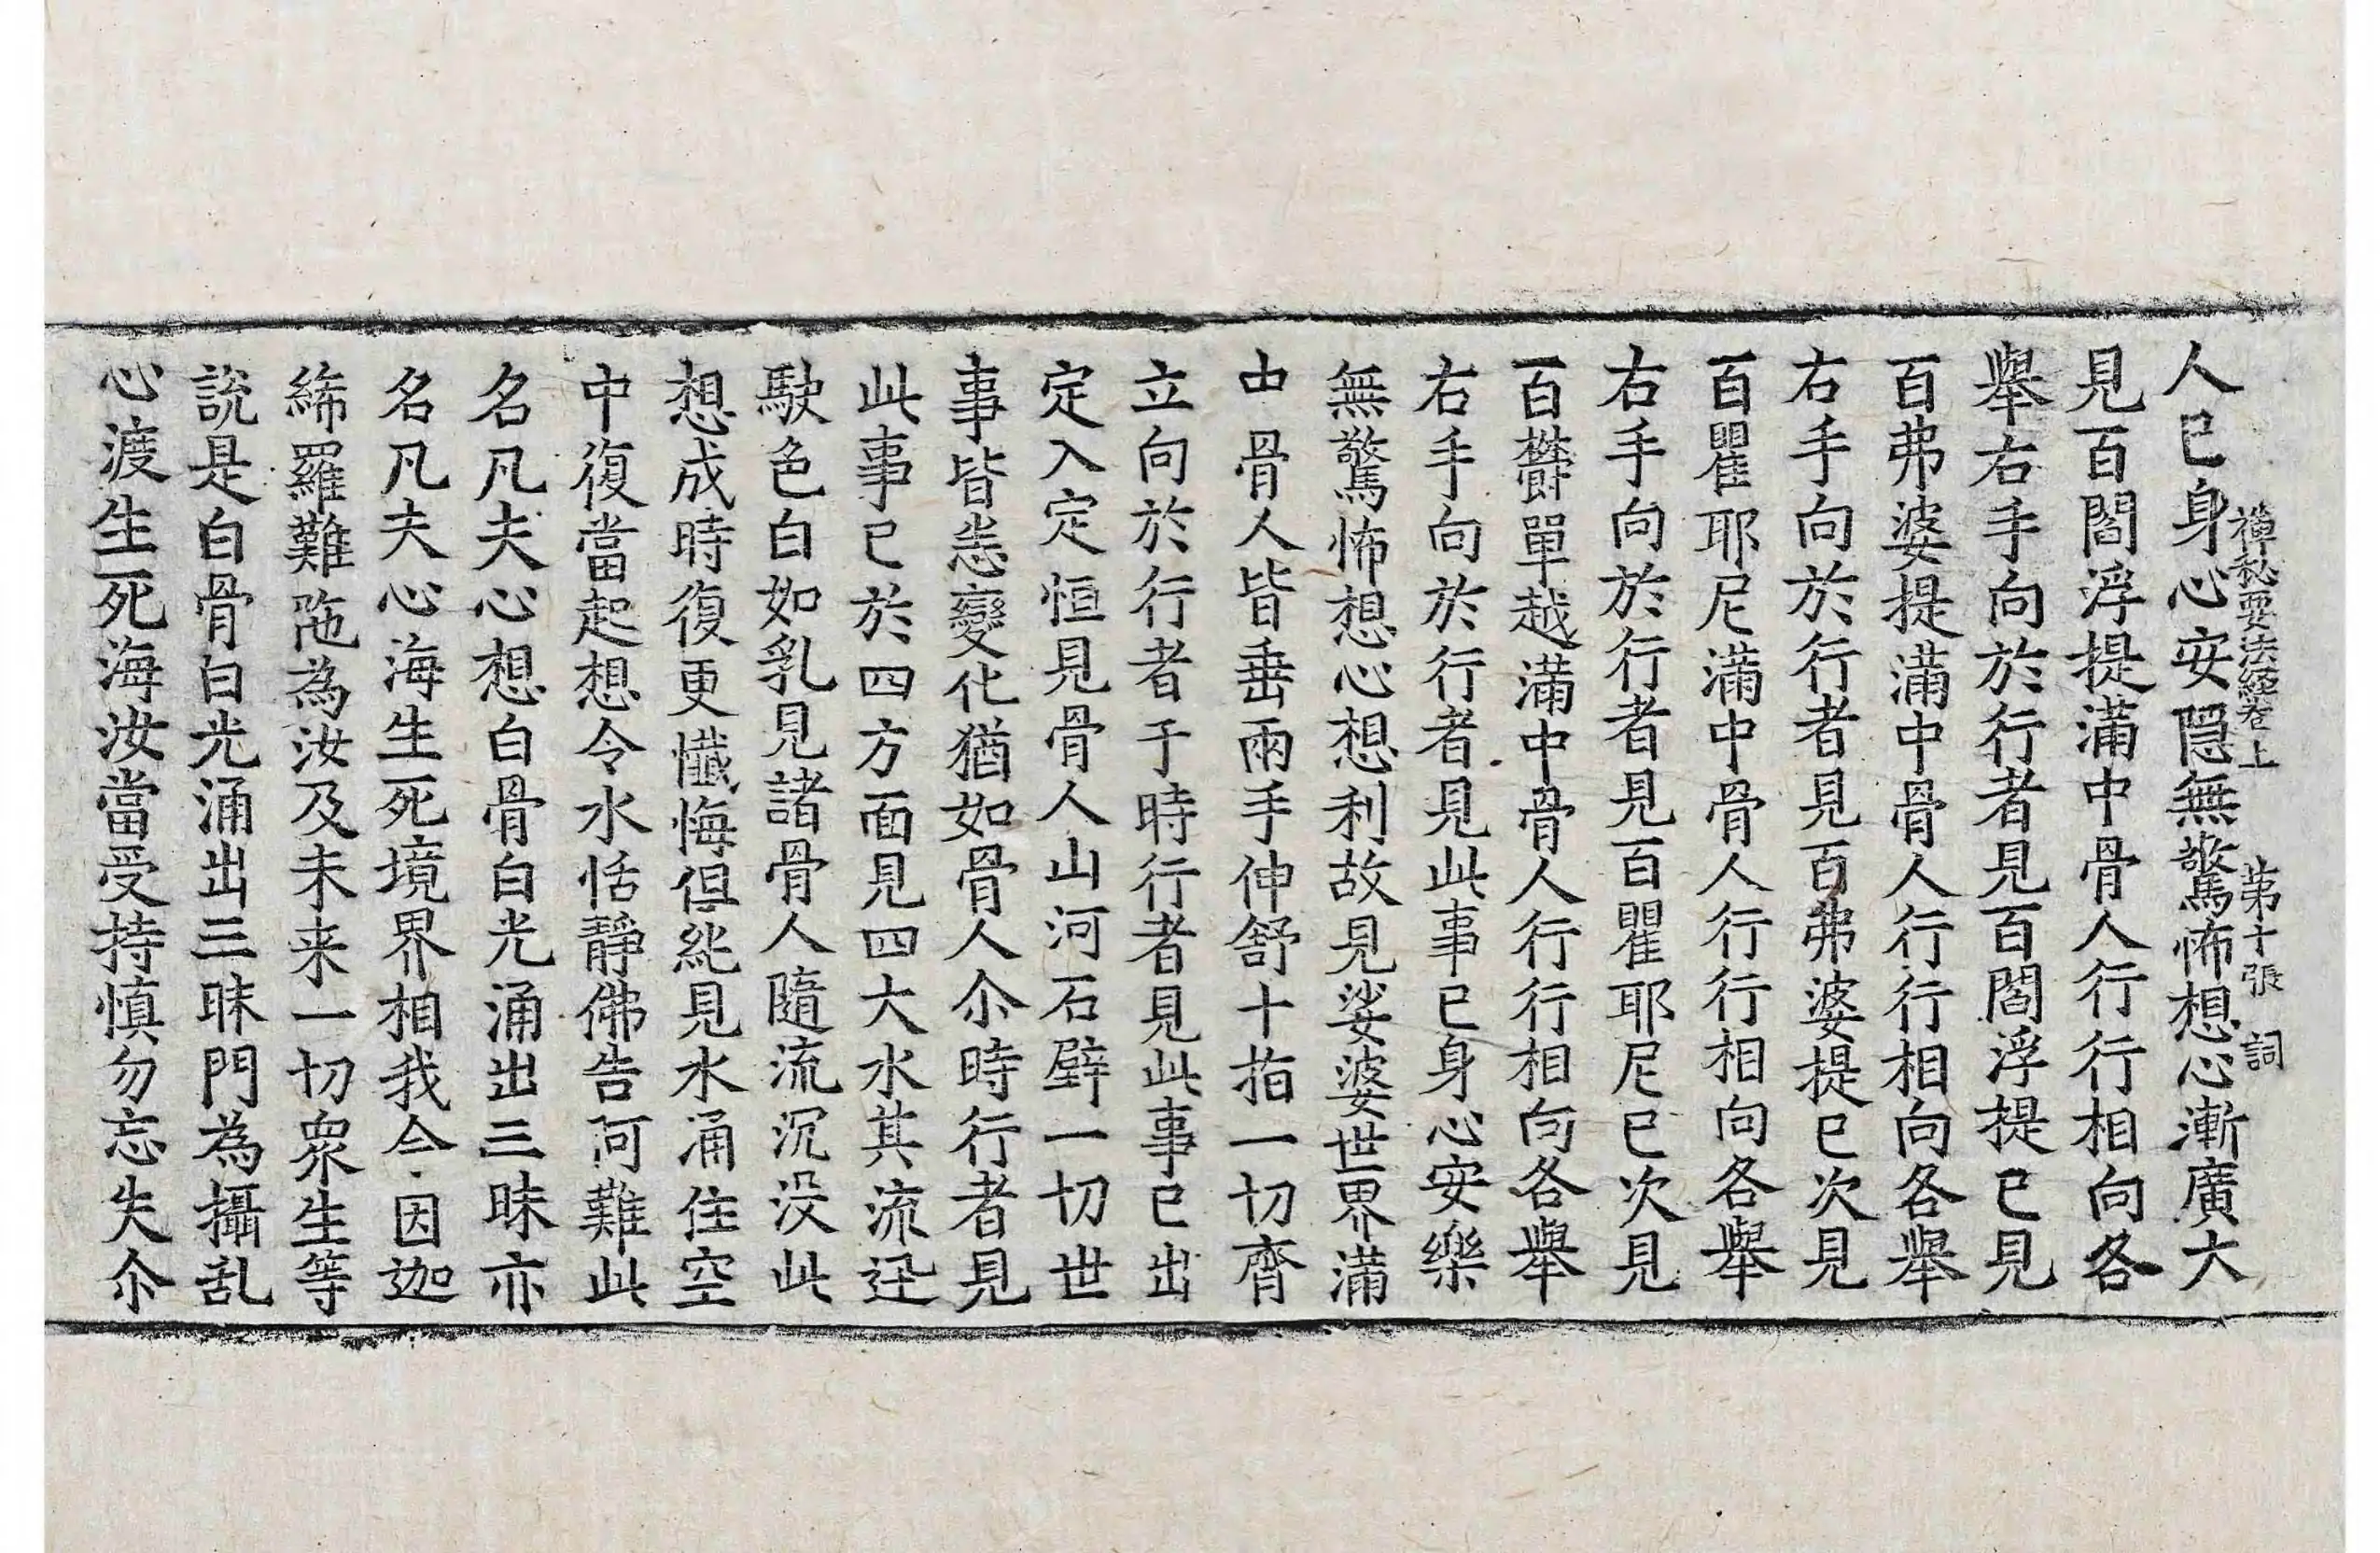 禪秘要法經卷上 第十張 詞
人已身心安隱無驚怖想心漸廣大
見百閻浮提滿中骨人行行相向各
擧右手向於行者見百閻浮提已見
百弗婆提滿中骨人行行相向各擧
右手向於行者見百弗婆提已次見
百瞿耶尼滿中骨人行行相向各擧
右手向於行者見百瞿耶尼已次見
百欝單越滿中骨人行行相向各擧
右手向於行者見此事已身心安樂
無驚怖想心想利故見娑婆世界滿
中骨人皆垂兩手伸舒十指一切齊
立向於行者于時行者見此事已出
定入定恒見骨人山河石壁一切世
事皆悉變化猶如骨人尒時行者見
此事已於四方面見四大水其流迅
駛色白如乳見諸骨人隨流沉没此
想成時復更懺悔但純見水涌住空
中復當起想令水恬靜佛告阿難此
名凡夫心想白骨白光涌出三昧亦
名凡夫心海生死境界相我今因迦
絺羅難陁為汝及未来一切衆生等
說是白骨白光涌出三昧門為攝乱
心渡生死海汝當受持慎勿忘失尒